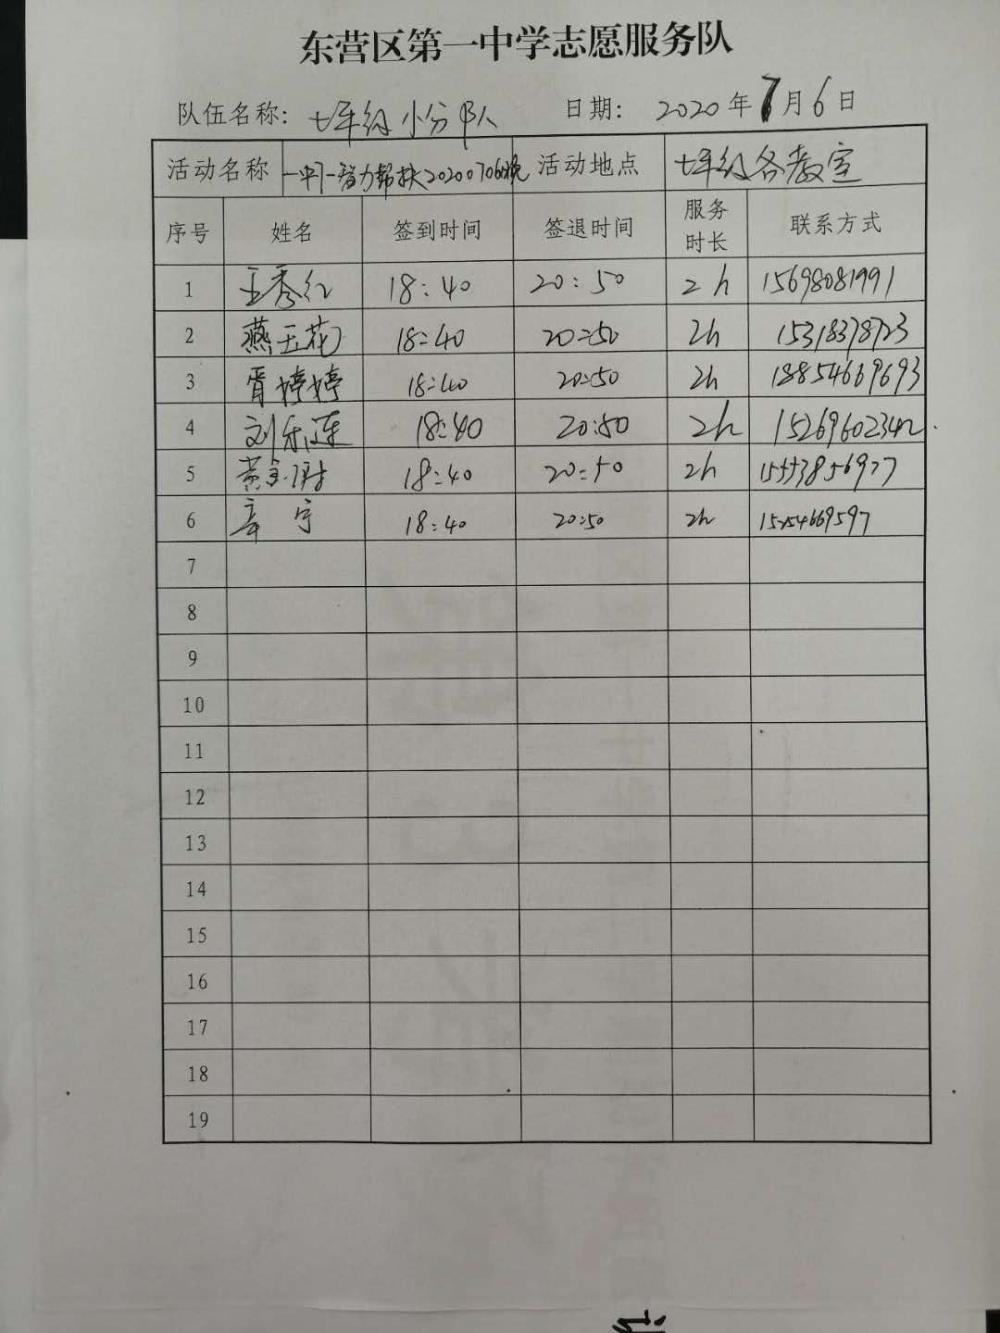 东营区第一中学志愿服务队
队伍名称: 七年级小分队 日期: 2020年7月6日
活动名称 一中一智力帮扶20200706晚 活动地点 七年级各教室
序号 姓名 签到时间 签退时间 服务时长 联系方式
1 王秀红 18:40 20:50 2h 15698081991
2 燕玉花 18:40 20:50 2h 15318378723
3 胥婷婷 18:40 20:50 2h 18854669693
4 刘乐莲 18:40 20:50 2h 15269602342
5 18:40 20:50 2h 15553856977
6 18:40 20:50 2h 15254669597
7
8
9
10
11
12
13
14
15
16
17
18
19